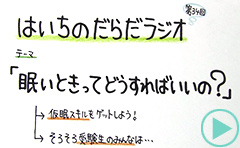 第34回
はいちのだらだラジオ
テーマ
「眠いときってどうすればいいの?」
仮眠スキルをゲットしよう!
そろそろ受験生のみんなは…